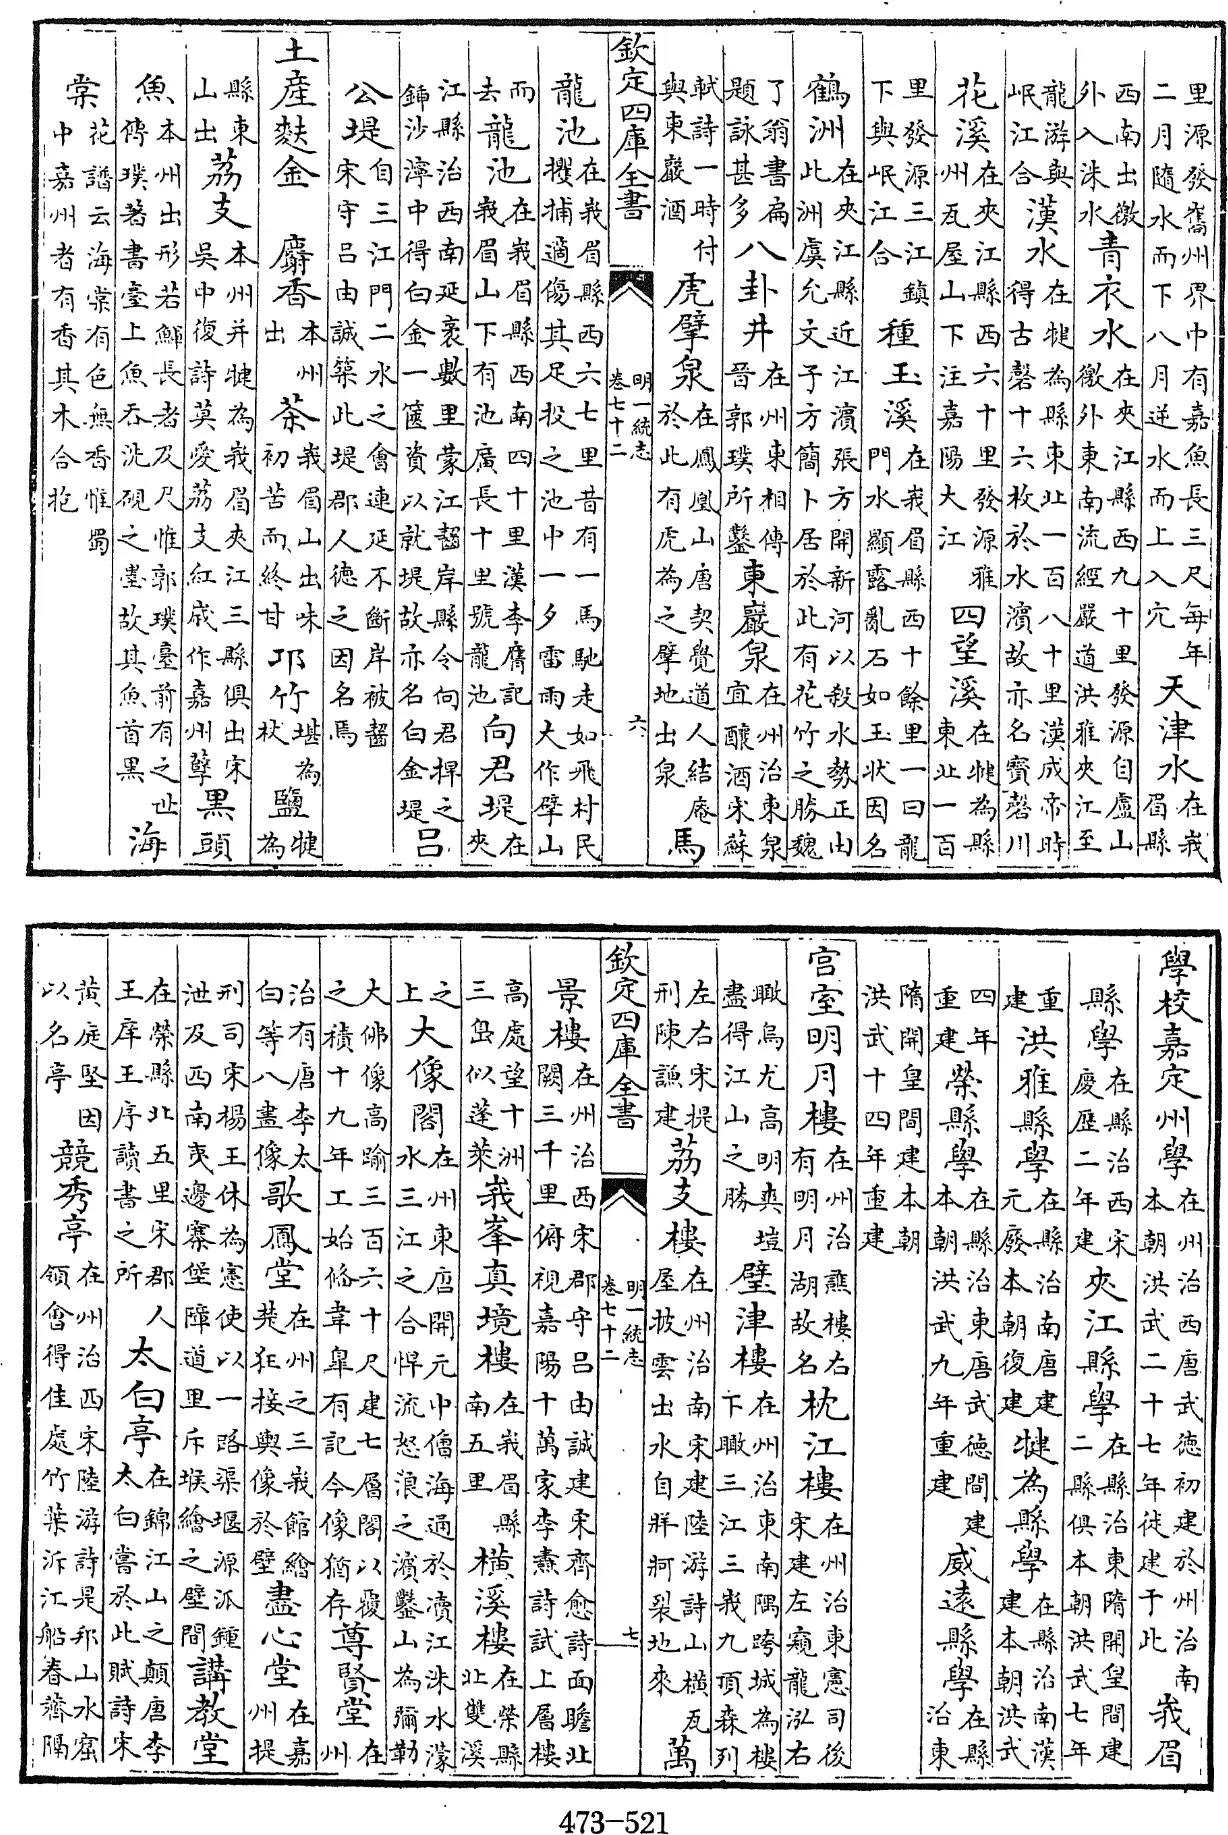 里源發嶲州界中有嘉魚長三尺每年二月隨水而下八月逆水而上入穴天津水在峩眉縣
西南出徼外入洙水青衣水在夾江縣西九十里發源自盧山徼外東南流經嚴道洪雅夾江至
龍游與岷江合漢水在犍為縣東北一百八十里漢成帝時得古磬十六枚於水濱故亦名寳磬川
花溪在夾江縣西六十里發源雅州瓦屋山下注嘉陽大江四望溪在犍為縣東北一百
里發源三江鎮下與岷江合種玉溪在峩眉縣西十餘里一曰龍門水顯露亂石如玉狀因名
鶴洲在夾江縣近江濱張方開新河以殺水勢正由此洲虞允文子方簡卜居於此有花竹之勝魏
了翁書扁題詠甚多八卦井在州東相傳晉郭璞所鑿東巖泉在州治東泉宜釀酒宋蘇
軾詩一時付與東巖酒虎擘泉在鳳凰山唐契覺道人結庵於此有虎為之擘地出泉馬
欽定四庫全書 明一統志卷七十二 六
龍池在峩眉縣西六七里昔有一馬馳走如飛村民攫捕適傷其足投之池中一夕雷雨大作擘山
而去龍池在峩眉縣西南四十里漢李膺記峩眉山下有池廣長十里號龍池向君堤在夾
江縣治西南延袤數里蒙江齧岸縣令向君捍之鍤沙濘中得白金一篋資以就堤故亦名白金堤呂
公堤自三江門二水之會連延不斷岸被齧宋守呂由誠築此堤郡人德之因名焉
土産麩金 麝香本州出 茶峩眉山出味初苦而終甘 邛竹堪為杖 鹽犍為
縣東山出荔支本州并犍為峩眉夾江三縣俱出宋吳中復詩莫愛荔支紅歲作嘉州孽黒頭
魚本州出形若鱓長者及尺惟郭璞臺前有之世傳璞著書臺上魚吞洗硯之墨故其魚首黒海
棠花譜云海棠有色無香惟蜀中嘉州者有香其木合抱
學校嘉定州學在州治西唐武德初建於州治南本朝洪武二十七年徙建于此峩眉
縣學在縣治西宋慶歷二年建夾江縣學在縣治東隋開皇間建二縣俱本朝洪武七年
重建洪雅縣學在縣治南唐建元廢本朝復建犍為縣學在縣治南漢建本朝洪武
四年重建榮縣學在縣治東唐武德間建本朝洪武九年重建威遠縣學在縣治東
隋開皇間建本朝洪武十四年重建
宫室明月樓在州治譙樓右有明月湖故名枕江樓在州治東憲司後宋建左窺龍泓右
瞰烏尤高明爽塏盡得江山之勝壁津樓在州治東南隅跨城為樓下瞰三江三峩九頂森列
左右宋提刑陳謙建荔支樓在州治南宋建陸游詩山横瓦屋披雲出水自牂牁裂地來萬
欽定四庫全書 明一統志卷七十二 七
景樓在州治西宋郡守呂由誠建宋齊愈詩面瞻北闕三千里俯視嘉陽十萬家李燾詩試上層樓
高處望十洲三島似蓬萊峩峯真境樓在峩眉縣南五里横溪樓在榮縣北雙溪
之上大像閣在州東唐開元中僧海通於凟江洙水濛水三江之合悍流怒浪之濱鑿山為彌勒
大佛像高踰三百六十尺建七層閣以覆之積十九年工始備韋臯有記今像猶存尊賢堂在州
治有唐李太白等八畫像歌鳳堂在州之三峩館繪楚狂接輿像於壁盡心堂在嘉州提
刑司宋楊王休為憲使以一路渠堰源派鍾泄及西南夷邊寨堡障道里斥堠繪之壁間講教堂
在榮縣北五里宋郡人王庠王序讀書之所太白亭在錦江山之顛唐李太白嘗於此賦詩宋
黄庭堅因以名亭競秀亭在州治西宋陸游詩是邦山水窟領會得佳處竹葉泝江船春霽隔
473-521